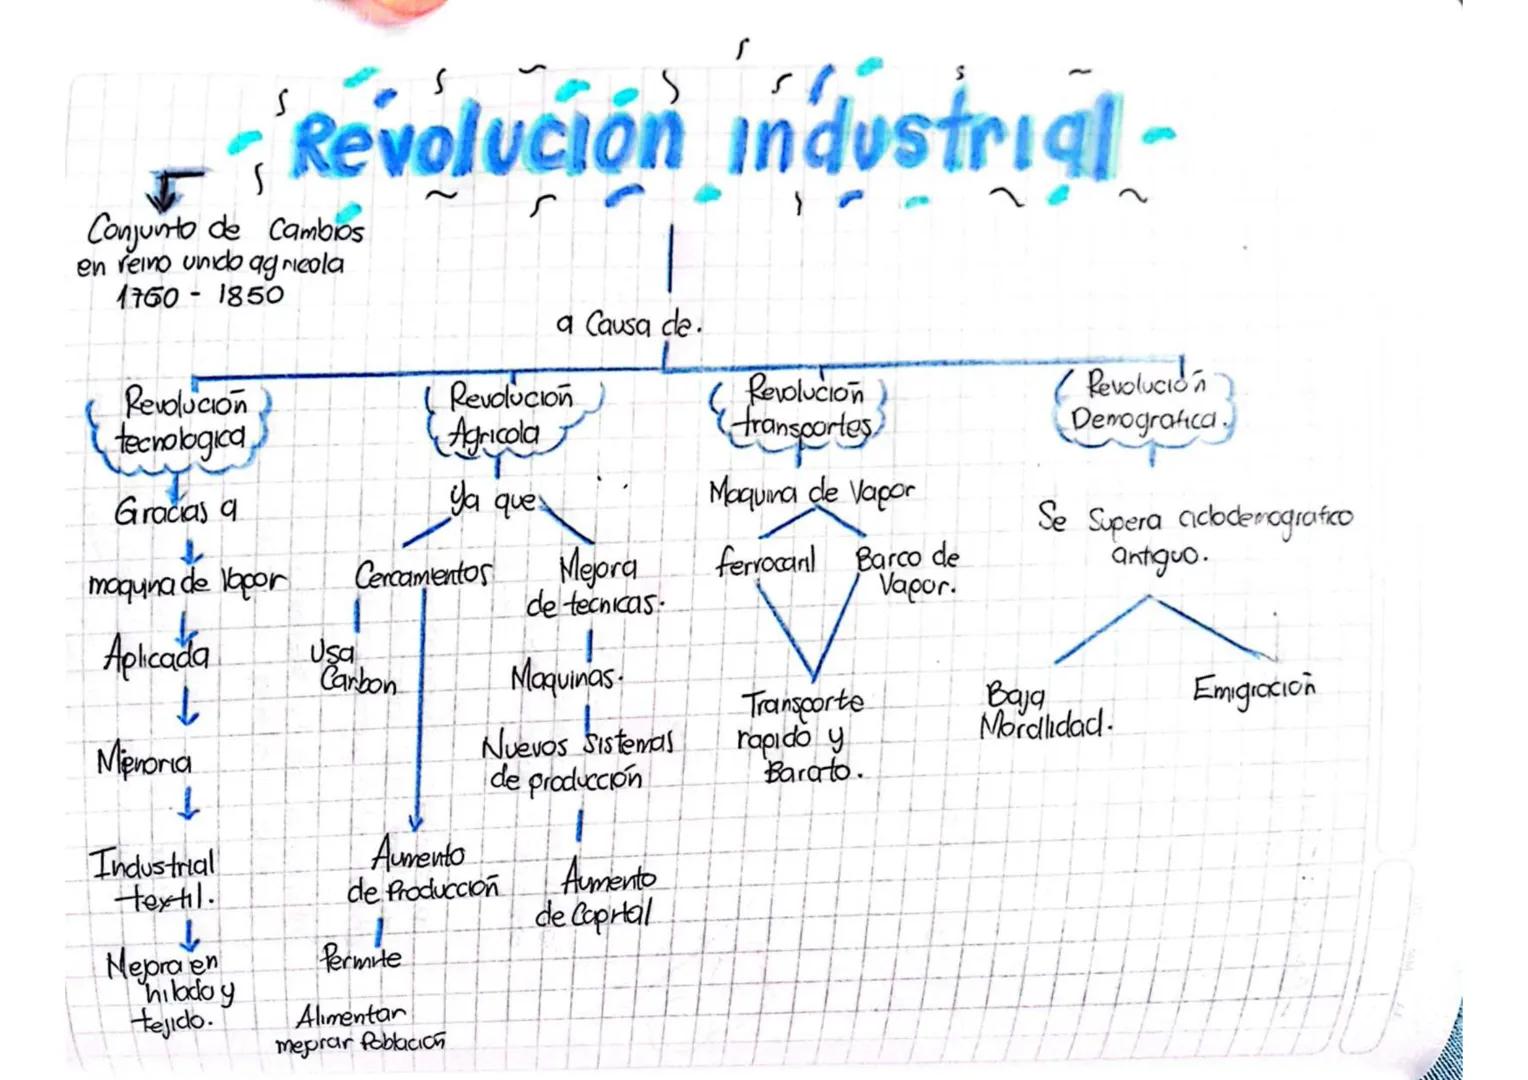 Revolución industrial
Conjunto de Cambios
en reino unido agricola
1760 - 1850
a Causa de.
Revolución
tecnologica
Gracias a
maquina de Vapor
Aplicada
Mineria
Industrial
textil.
Mejora en
hilado y
tejido.
Revolución
Agricola
Ya que
Cercamentos
Usa
Carbon
Aumento
de Producción
Permite
Alimentar
mejorar Población
Mejora
de tecnicas.
Maquinas.
Nuevos Sistemas
de producción
Aumento
de Capital
Revolución
transportes
Maquina de Vapor
ferrocaril
Barco de
Vapor.
Transporte
rapido y
Barato.
Revolución
Demografica.
Se Supera ciclodemografico
antiguo.
Baja
Mortalidad.
Emigración